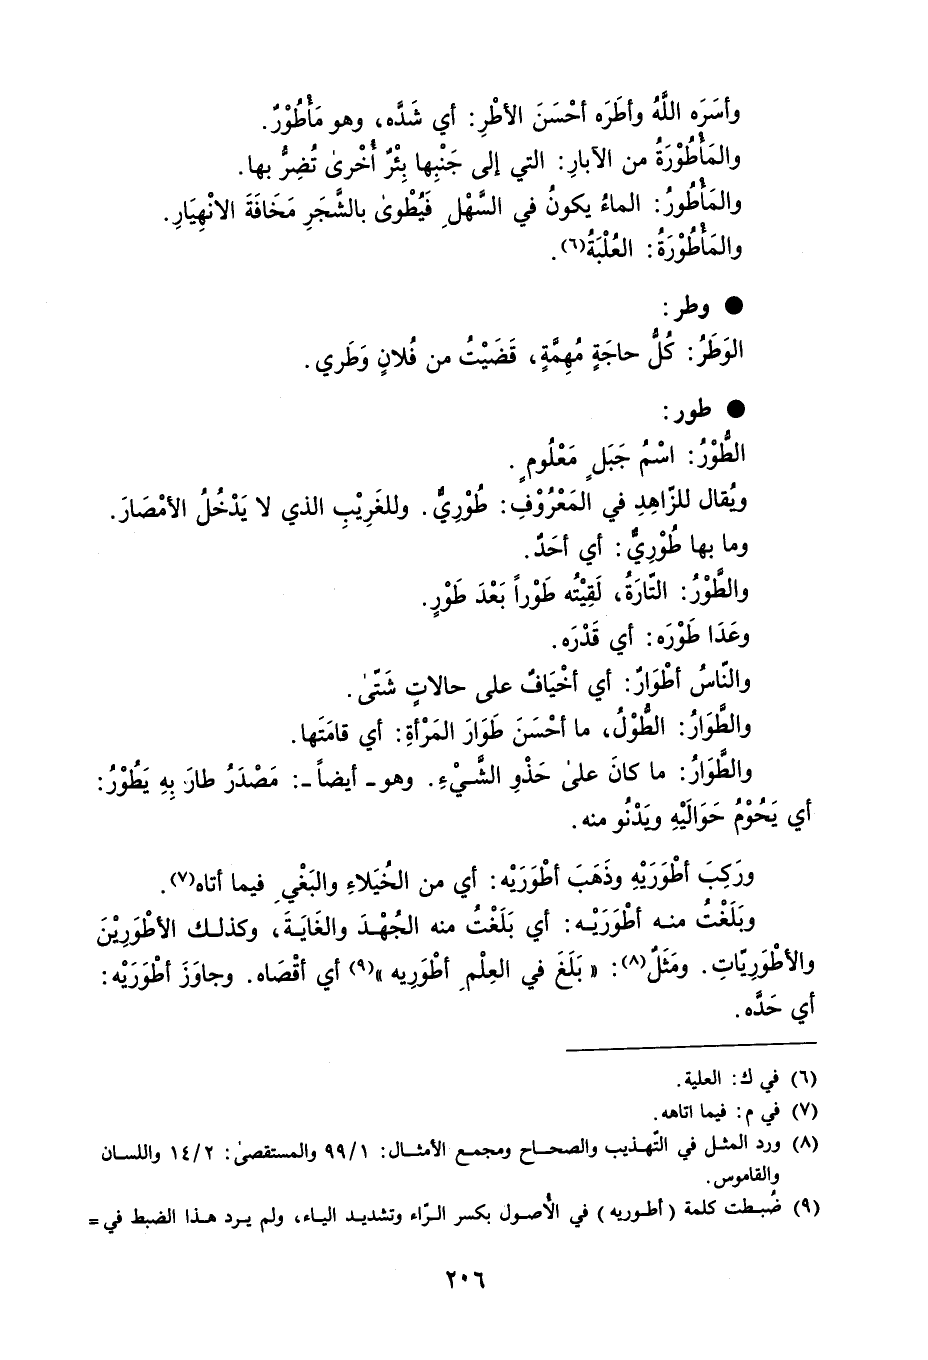 وأسَرَه اللَّهُ وأطَرَه أحْسَنَ الأطْرِ: أي شَدَّه، وهو مَأْطُوْرٌ.
والمَأْطُوْرَةُ من الآبارِ: التي إلى جَنْبِها بِئْرٌ أُخْرىٰ تُضِرُّ بها.
والمَأْطُورُ: الماءُ يكونُ في السَّهْلِ فَيُطْوىٰ بالشَّجَرِ مَخَافَةَ الانْهِيَارِ.
والمَأْطُوْرَةُ: العُلْبَةُ(٦).
● وطر:
الوَطَرُ: كُلُّ حاجَةٍ مُهِمَّةٍ، قَضَيْتُ من فُلانٍ وَطَري.
● طور:
الطُّوْرُ: اسْمُ جَبَلٍ مَعْلُومٍ.
ويُقال للزّاهِدِ في المَعْرُوْفِ: طُوْرِيٌّ. وللغَرِيْبِ الذي لا يَدْخُلُ الأمْصَارَ.
وما بها طُوْرِيٌّ: أي أحَدٌ.
والطَّوْرُ: التّارَةُ، لَقِيْتُه طَوْراً بَعْدَ طَوْرٍ.
وعَدَا طَوْرَه: أي قَدْرَه.
والنّاسُ أطْوَارٌ: أي أخْيَافٌ على حالاتٍ شَتّىٰ.
والطَّوَارُ: الطُّوْلُ، ما أحْسَنَ طَوَارَ المَرْأةِ: أي قامَتَها.
والطَّوَارُ: ما كانَ علىٰ حَذْوِ الشَّيْءِ. وهو ـ أيضاً ـ: مَصْدَرُ طارَ بِهِ يَطُوْرُ:
أي يَحُوْمُ حَوَالَيْهِ ويَدْنُو منه.
ورَكِبَ أطْوَرَيْهِ وذَهَبَ أطْوَرَيْه: أي من الخُيَلاءِ والبَغْيِ فيما أتاه(٧).
وبَلَغْتُ منـه أطْوَرَيْـه: أي بَلَغْتُ منه الجُهْـدَ والغَايَـةَ، وكذلـك الأطْوَرِيْنَ
والأطْوَرِيّاتِ. ومَثَلٌ(٨): « بَلَغَ في العِلْمِ أطْوَرِيه »(٩) أي أقْصَاه. وجاوَزَ أطْوَرَيْه:
أي حَدَّه.
(٦) في ك: العلية.
(٧) في م: فيما اتاهه.
(٨) ورد المثـل في التّهـذيب والصحـاح ومجمـع الأمثـال: ١/ ٩٩ والمستقصىٰ: ٢/ ١٤ واللسـان
والقاموس.
(٩) ضُبـطت كلمة ( أطـوريه ) في الأصـول بكسر الـرّاء وتشديـد اليـاء، ولم يـرد هـذا الضبط في =
٢٠٦